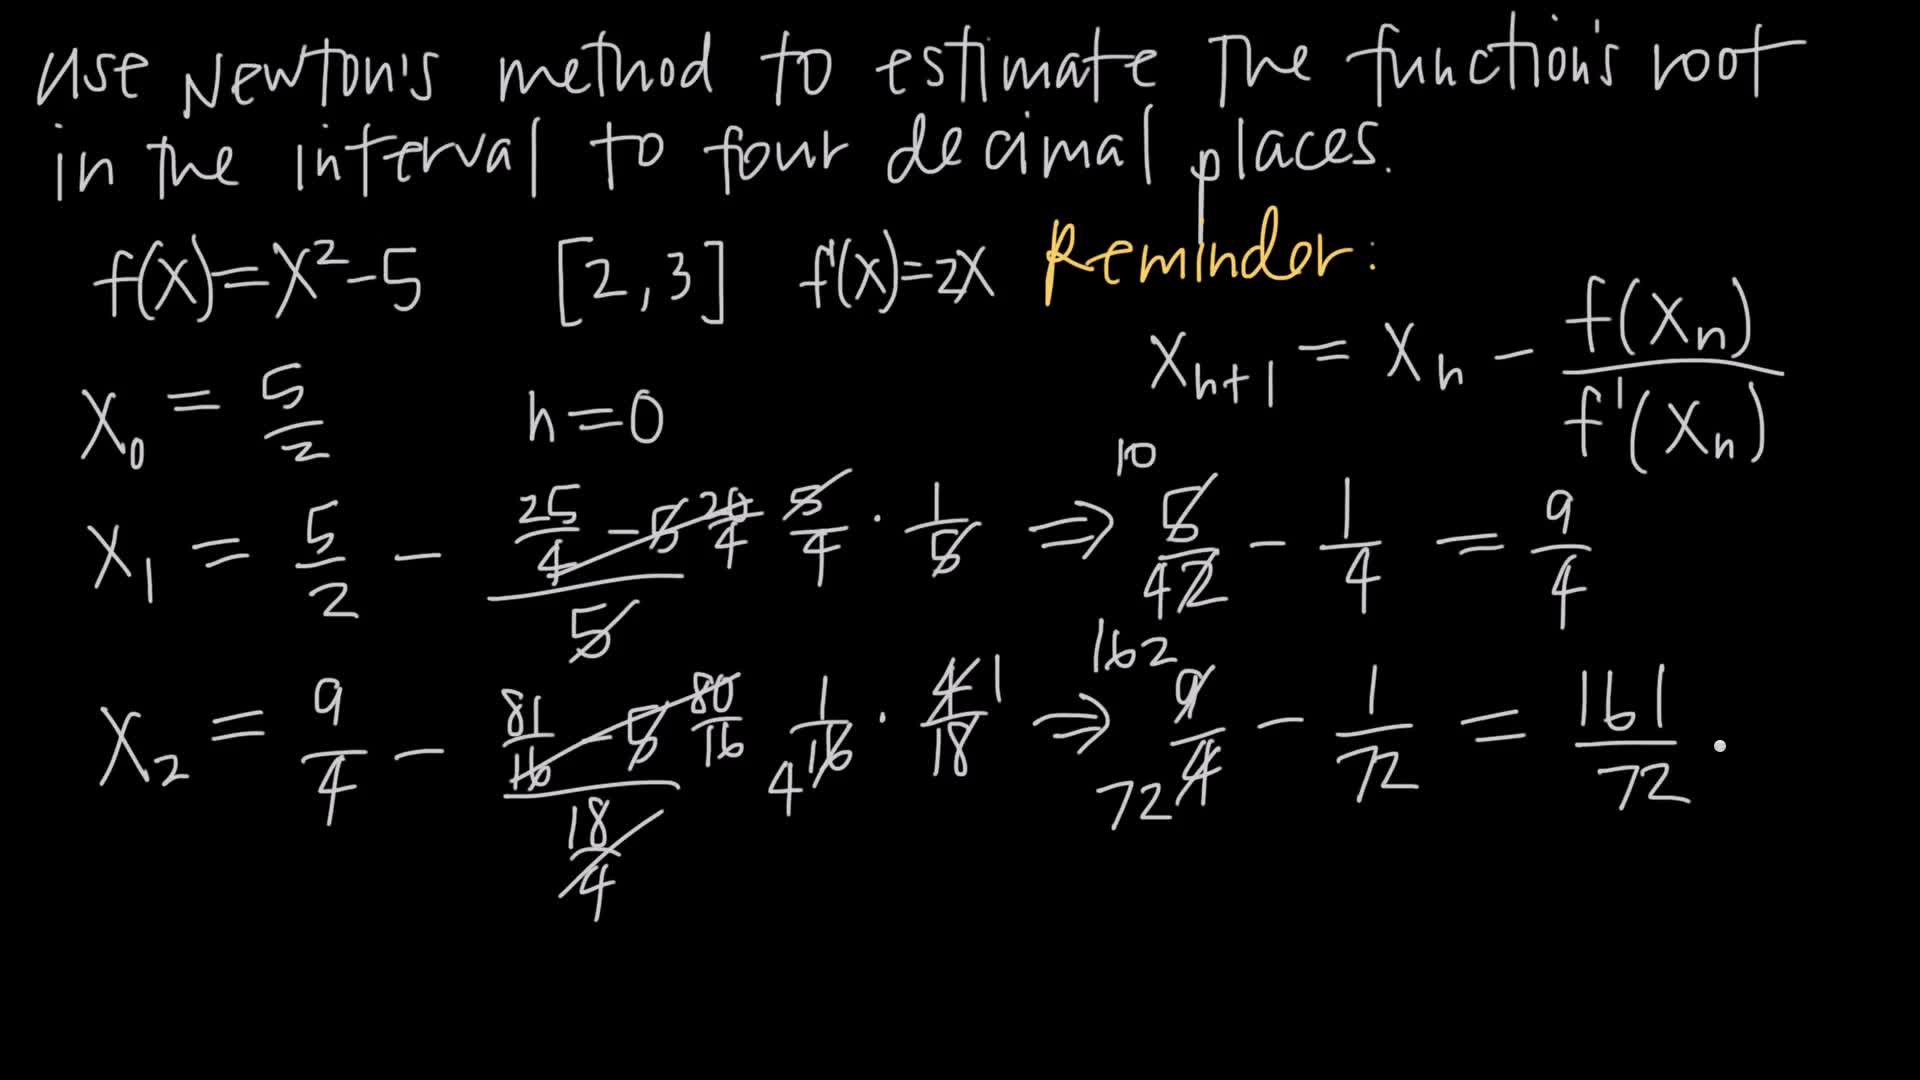 Use Newton's method to estimate the function's root
in the interval to four decimal places.
f(x)=x²-5 [2,3] f'(x)=2x Reminder:
x_{n+1} = x_n - f(x_n)/f'(x_n)
x_0 = 5/2 n=0
x_1 = 5/2 - (25/4 - 5 20/4)/5 5/4 · 1/5 ⇒ 10 5/4 2 - 1/4 = 9/4
x_2 = 9/4 - (81/16 - 5 80/16)/(18/4) 1/4 16 · 4 1/18 ⇒ 162 9/72 4 - 1/72 = 161/72